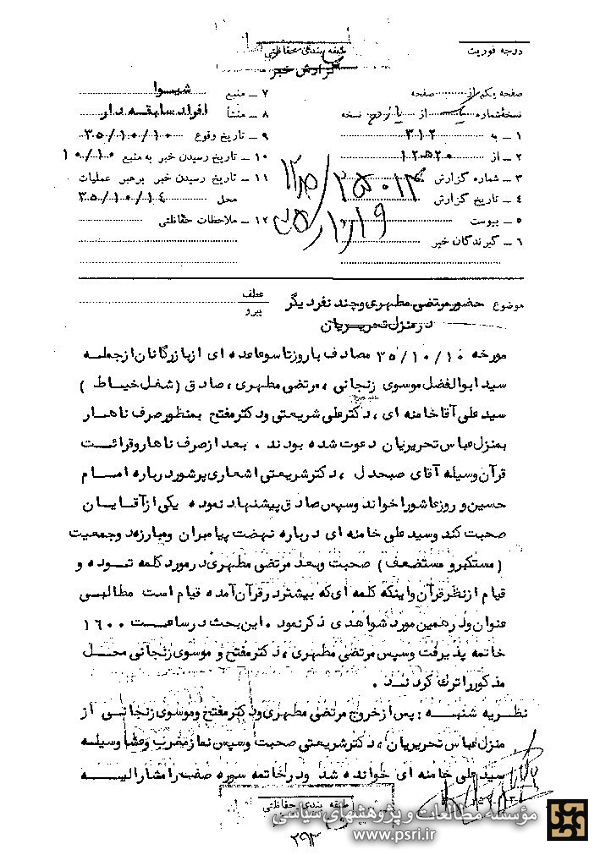 درجه فوریت
طبقه بندی حفاظتی
گزارش خبر
صفحه یکم از صفحه
نسخه شماره یک از یازدهم نسخه
۱ - به ۳۱۲
۲ - از ۲۰ﻫ۱۲
۳ - شماره گزارش
۴ - تاریخ گزارش
۵ - پیوست
۶ - گیرندگان خبر
۷ - منبع شیوا
۸ - منشأ افراد سابقه دار
۹ - تاریخ وقوع ۳۵/۱۰/۱۰
۱۰ - تاریخ رسیدن خبر به منبع ۱۰/۱۰
۱۱ - تاریخ رسیدن خبر برهبر عملیات
محل ۳۵/۱۰/۱۴
۱۲ - ملاحظات حفاظتی
موضوع حضور مرتضی مطهری و چند نفر دیگر
در منزل تحریریان
عطف
پیرو
مورخه ۳۵/۱۰/۱۰ مصادف با روز تاسوعا عده ای از بازرگانان از جمله
سید ابوالفضل موسوی زنجانی ، مرتضی مطهری ، صادق (شغل خیاط )
سید علی آقا خامنه ای ، دکتر علی شریعتی و دکتر مفتح بمنظور صرف ناهار
بمنزل عباس تحریریان دعوت شده بودند . بعد از صرف ناهار و قرائت
قرآن وسیله آقای صبحدل ، دکتر شریعتی اشعاری پرشور درباره امام
حسین و روز عاشورا خواند و سپس صادق پیشنهاد نموده یکی از آقایان
صحبت کند و سید علی خامنه ای درباره نهضت پیامبران و مبارزه دو جمعیت
(مستکبر و مستضعف) صحبت و بعد مرتضی مطهری در مورد کلمه توده و
قیام از نظر قرآن و اینکه کلمه ای که بیشتر در قرآن آمده قیام است مطالبی
عنوان و در همین مورد شواهدی ذکر نمود . این بحث در ساعت ۱۶۰۰
خاتمه پذیرفت و سپس مرتضی مطهری ، دکتر مفتح و موسوی زنجانی محل
مذکور را ترک کردند .
نظریه شنبه : پس از خروج مرتضی مطهری و دکتر مفتح و موسوی زنجانی از
منزل عباس تحریریان ، دکتر شریعتی صحبت و سپس نماز مغرب و عشا وسیله
سید علی خامنه ای خوانده شد و در خاتمه سوره صف را مشارالیه
طبقه بندی حفاظتی
۲۹۳
مؤسسه مطالعات و پژوهشهای سیاسی
www.psri.ir